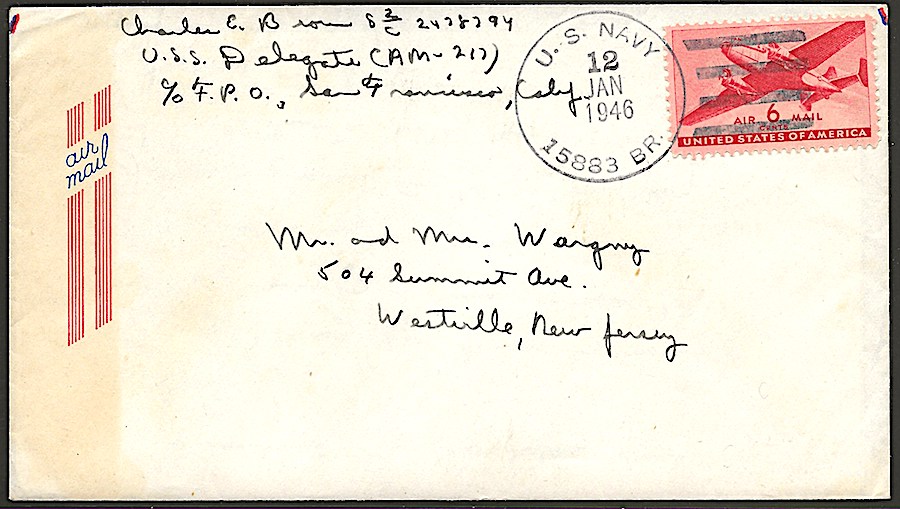 Charles E. Brown S 2/c 2438394
U.S.S. Delegate (AM-217)
c/o F.P.O., San Francisco, Caly.
U.S. NAVY
12
JAN
1946
15883 BR.
AIR 6 MAIL
CENTS
UNITED STATES OF AMERICA
air
mail
Mr. and Mrs. Wargny
504 Summit Ave.
Westville, New Jersey